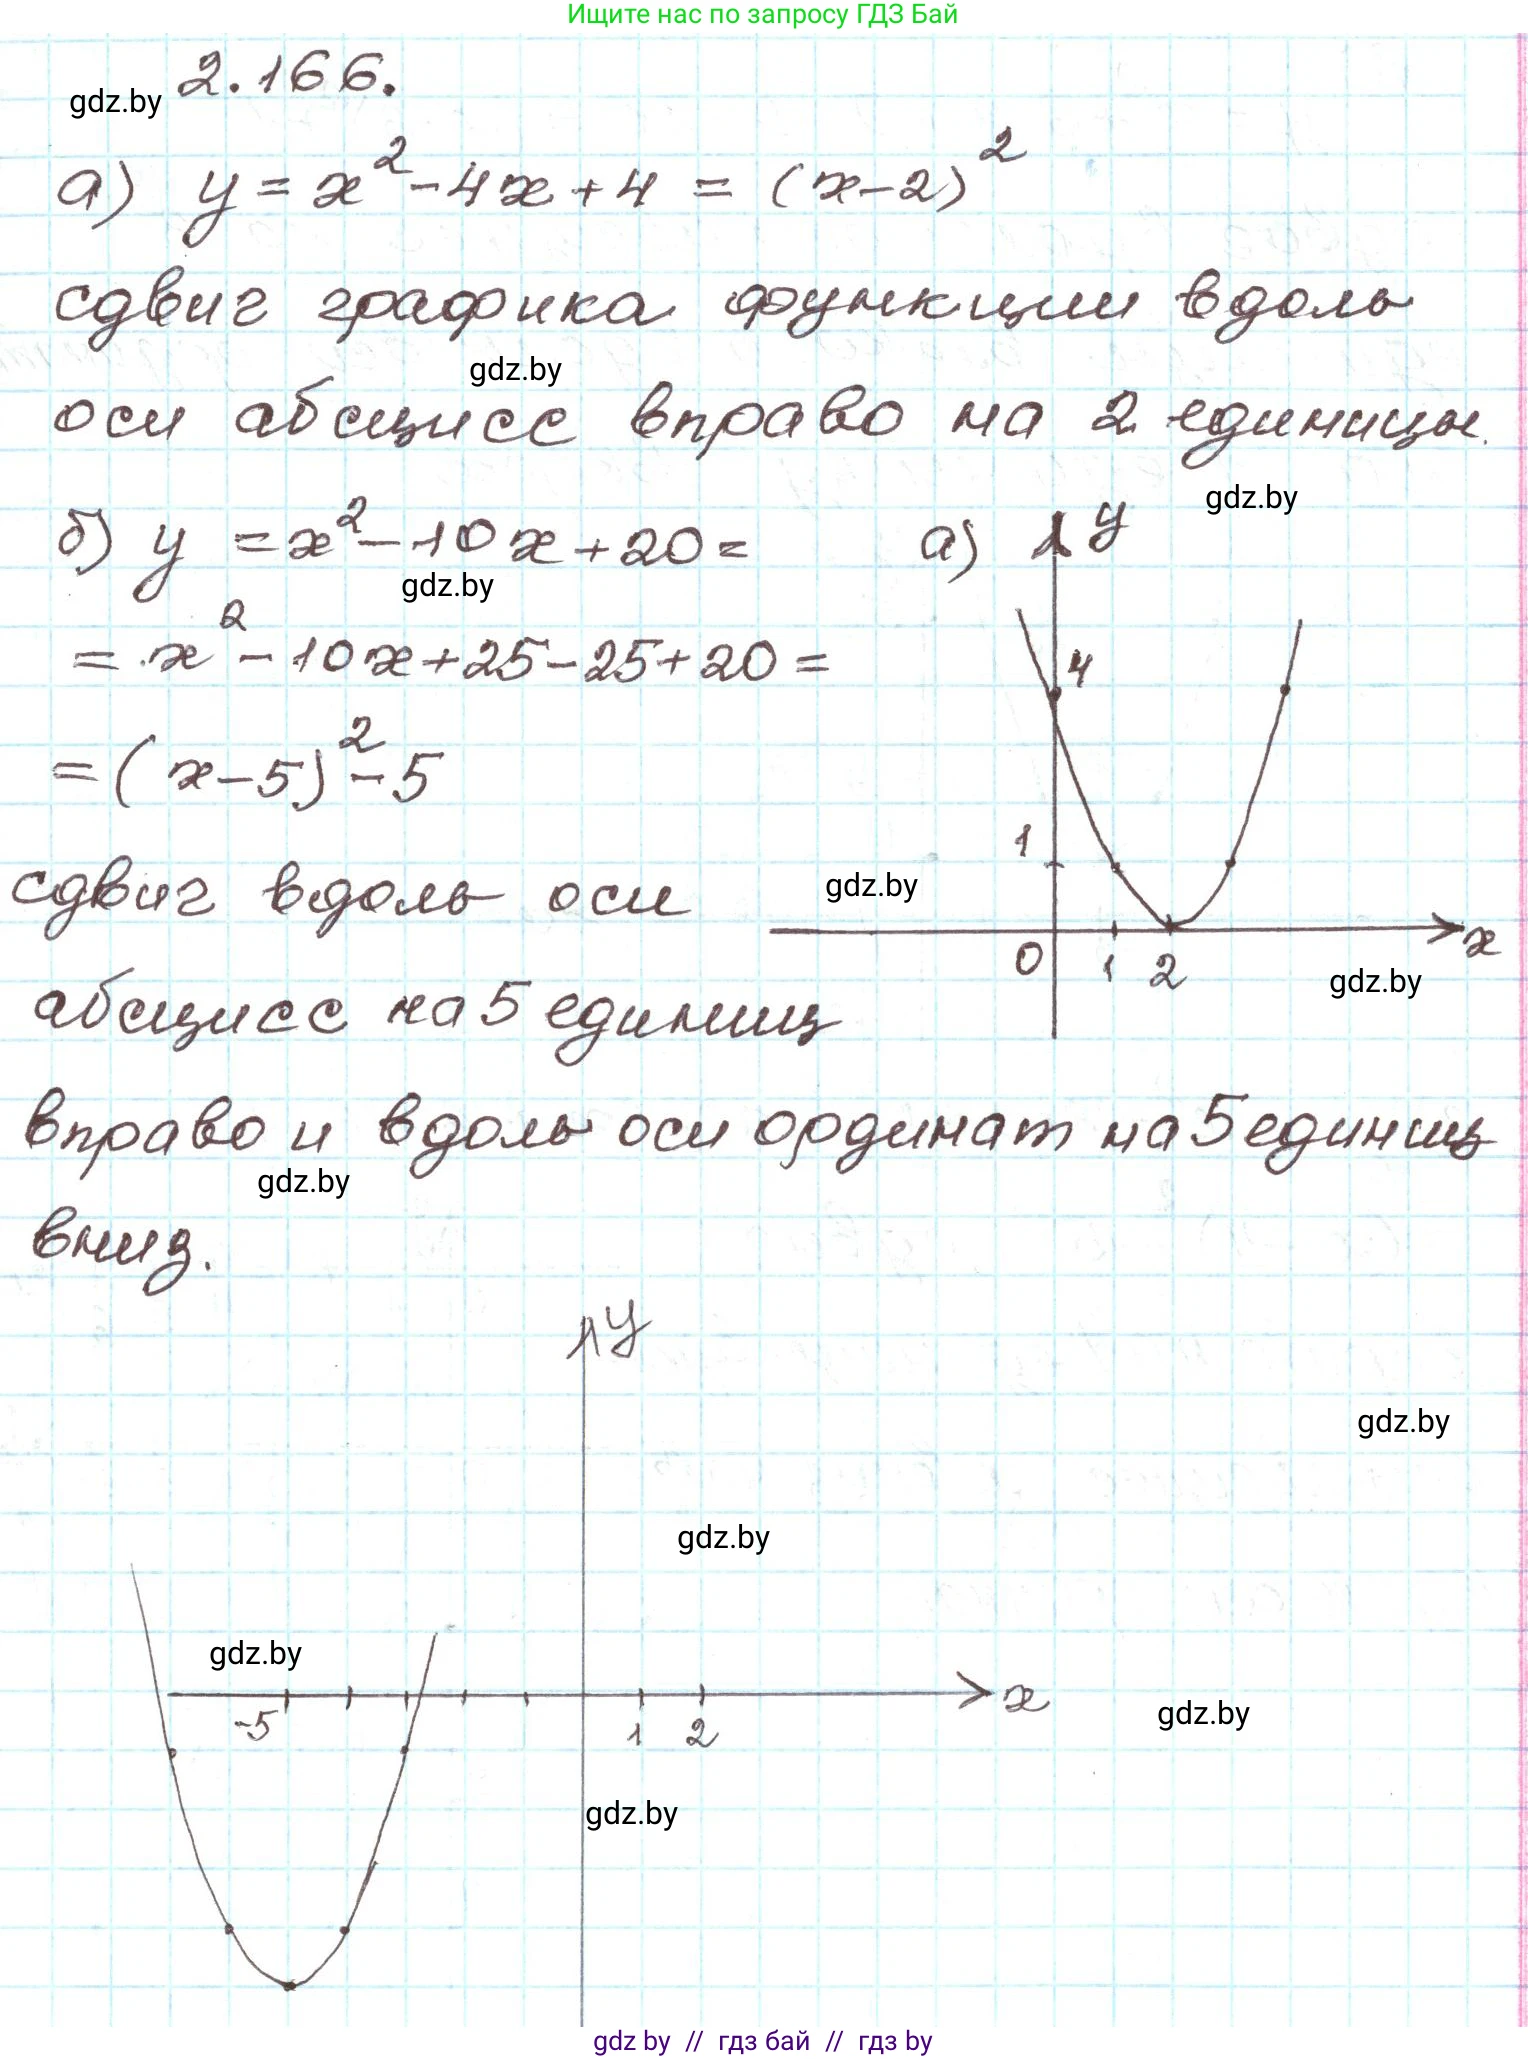 Ищите нас по запросу ГДЗ Бай
2.166.
gdz.by
а) y = x² - 4x + 4 = (x - 2)²
сдвиг графика функции вдоль
gdz.by
оси абсцисс вправо на 2 единицы.
gdz.by
б) y = x² - 10x + 20 =
gdz.by
= x² - 10x + 25 - 25 + 20 =
= (x - 5)² - 5
а) y
4
1
gdz.by
0 1 2 x
gdz.by
сдвиг вдоль оси
абсцисс на 5 единиц
вправо и вдоль оси ординат на 5 единиц
gdz.by
вниз.
y
gdz.by
gdz.by
gdz.by
-5 1 2 x
gdz.by
gdz.by
gdz by // гдз бай // гдз by